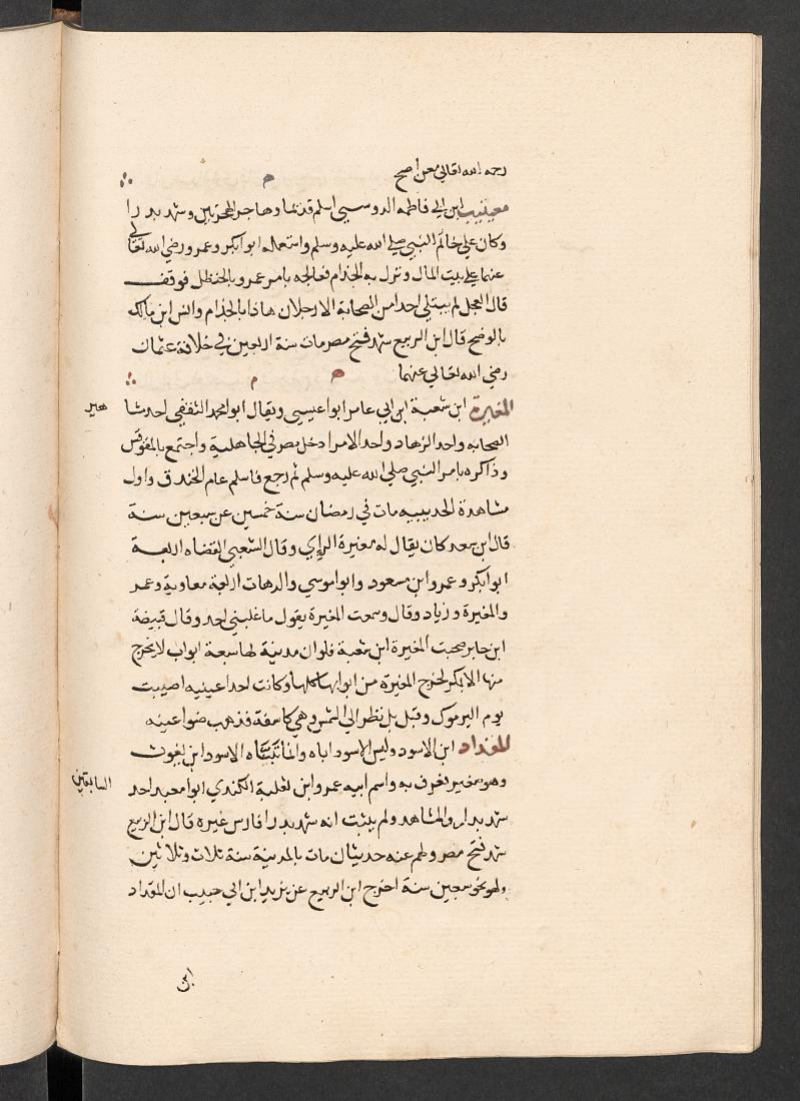 رحمه الله تعالى معن اصح
معيقيب ابن ابي فاطمه الدوسيى اسلم قديما وهاجر الهجرتين وشهد بدرا
وكان علي خاتم النبي صلى الله عليه وسلم واستعمله ابوابكر وعمر ورضي الله تعالى
عنهما علي بيت المال ونزل به الجذام فعالجه بامر عمر وبالحنظل فوقف
قال العجل لم يبتلي احد من الصحابة الا رجلان هاذا بالجذام وانس ابن مالك
بالوضح قال ابن الربيع شهد فتح مصر مات سنة اربعين في خلافة عثمان
رضي الله تعالى عنهما
المغيرة ابن شعبة ابن ابي عامر ابوا عيسى ويقال ابوا محمد الثقفي احد مشا
هير
الصحابه واحد الزهاد واحد الامرا دخل مصر في الجاهلية واجتمع بالمقوقس
وذاكره بامر النبي صلى الله عليه وسلم ثم رجع فاسلم عام الخندق واول
مشاهدة الحديبيه مات في رمضان سنة خمسين عن سبعين سنة
قال ابن سعد كان يقال له مغيرة الراي وقال الشعبي القضاه اربعة
ابوابكر وعمر وابن مسعود وابوا موسي والدهات اربعة معاوية وعمر
والمغيرة وزياد وقال وسمعت المغيرة يقول ما غلبني احد وقال قبيضة
ابن جابر صحبت المغيرة ابن شعبة فلوان مدينة لها سبعة ابواب لا يخرج
منها الا بمكر لخرج المغيرة من ابوابها كلها وكانت احدا عينيه اصيبت
يوم اليرموك وقيل بل نظر الي الشمس وهي كاسفة فذهب ضوا عينه
المقداد ابن الاسود وليس الاسود اباه وانما تبناه الاسود ابن يغوث
وهو صغير تعرف به واسم ابيه عمر وابن ثعلبة الكندي ابوا معبد احد
السابقين
شهد بدارا والمشاهد ولم يثبت انه شهد بدرا فارس غيره قال ابن الربيع
شهد فتح مصر ولهم عنه حديثان مات بالمدينة سنة ثلاث وثلاثين
وله نحو سبعين سنة اخرج ابن الربيع عن يزيد ابن ابي حبيب ان المقداد
ابن